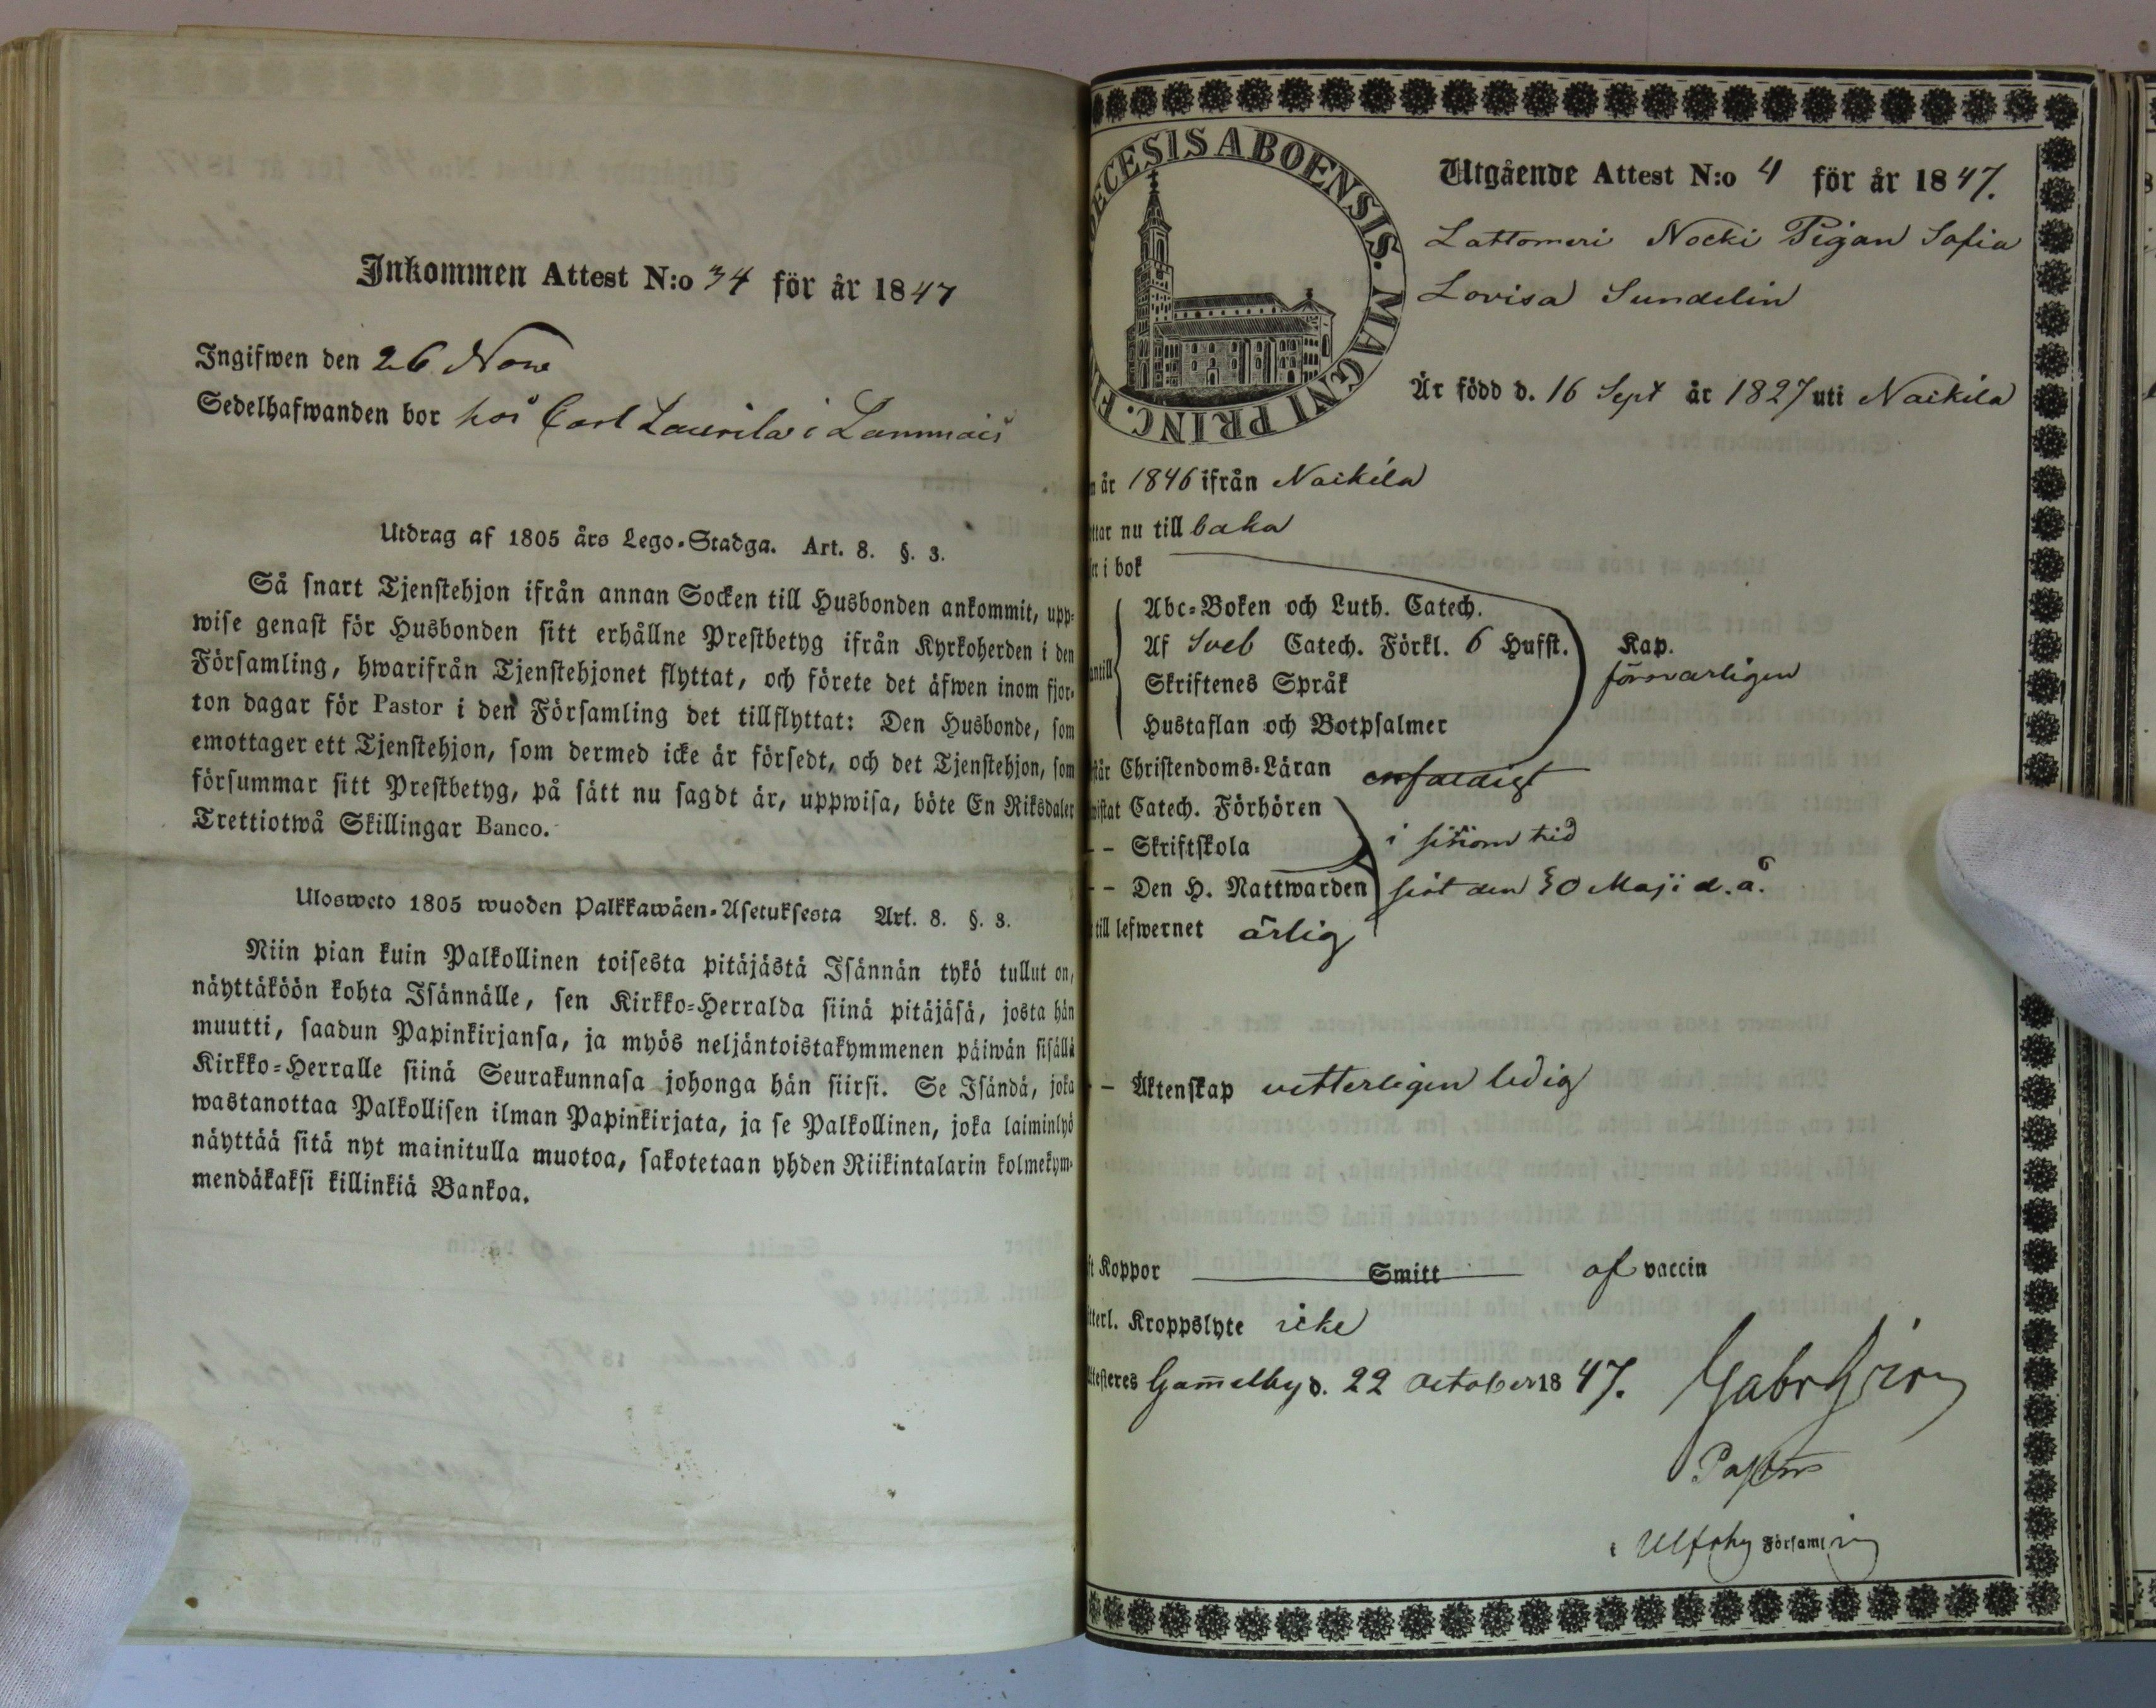 Inkommen Attest N:o 34 för år 1847
Ingifwen den 26 Nov
Sedelhafwanden bor hos Carl Laurila i Lammais
Utdrag af 1805 års Lego-Stadga. Art. 8. §. 3.
Så snart Tjenstehjon ifrån annan Socken till Husbonden ankommit, upp-
wise genast för Husbonden sitt erhållne Prestbetyg ifrån Kyrkoherden i den
Församling, hwarifrån Tjenstehjonet flyttat, och förete det äfwen inom fjor-
ton dagar för Pastor i den Församling det tillflyttat: Den Husbonde, som
emottager ett Tjenstehjon, som dermed icke är försedt, och det Tjenstehjon, som
försummar sitt Prestbetyg, på sätt nu sagdt är, uppwisa, böte En Riksdaler
Trettiotwå Skillingar Banco.
Ulosweto 1805 wuoden Palkkawäen-Asetuksesta Art. 8. §. 3.
Niin pian kuin Palkollinen toisesta pitäjästä Isännän tykö tullut on,
näyttäköön kohta Isännälle, sen Kirkko-Herralda siinä pitäjäsä, josta hän
muutti, saadun Papinkirjansa, ja myös neljäntoistakymmenen päiwän sisällä
Kirkko-Herralle siinä Seurakunnasa johonga hän siirsi. Se Isändä, joka
wastanottaa Palkollisen ilman Papinkirjata, ja se Palkollinen, joka laiminlyö
näyttää sitä nyt mainitulla muotoa, sakotetaan yhden Riikintalarin kolmekym-
mendäkaksi killinkiä Bankoa.
ECESIS ABOENSIS. MAGNI PRINC. F
Utgående Attest N:o 4 för år 1847.
Lattomeri Nocki Pigan Sofia
Lovisa Sundelin
Är född d. 16 Sept år 1827 uti Nackila
år 1846 ifrån Nackila
ttar nu till baka
i bok
Abc-Boken och Luth. Catech.
Af Sveb Catech. Förkl. 6 Hufst. Kap.
antill Skriftenes Språk försvarligen
Hustaflan och Botpsalmer
står Christendoms-Läran enfaldigt
wistat Catech. Förhören
- - Skriftskola i sinom tid
- - Den H. Nattwarden sist den 30 Maji d. å.
till lefwernet ärlig
- - Äktenskap vetterligen ledig
t Koppor Smitt af vaccin
tterl. Kroppslyte icke
ttesteres Gam̄elby d. 22 October 1847.
Pastor
i Ulfsby Församling